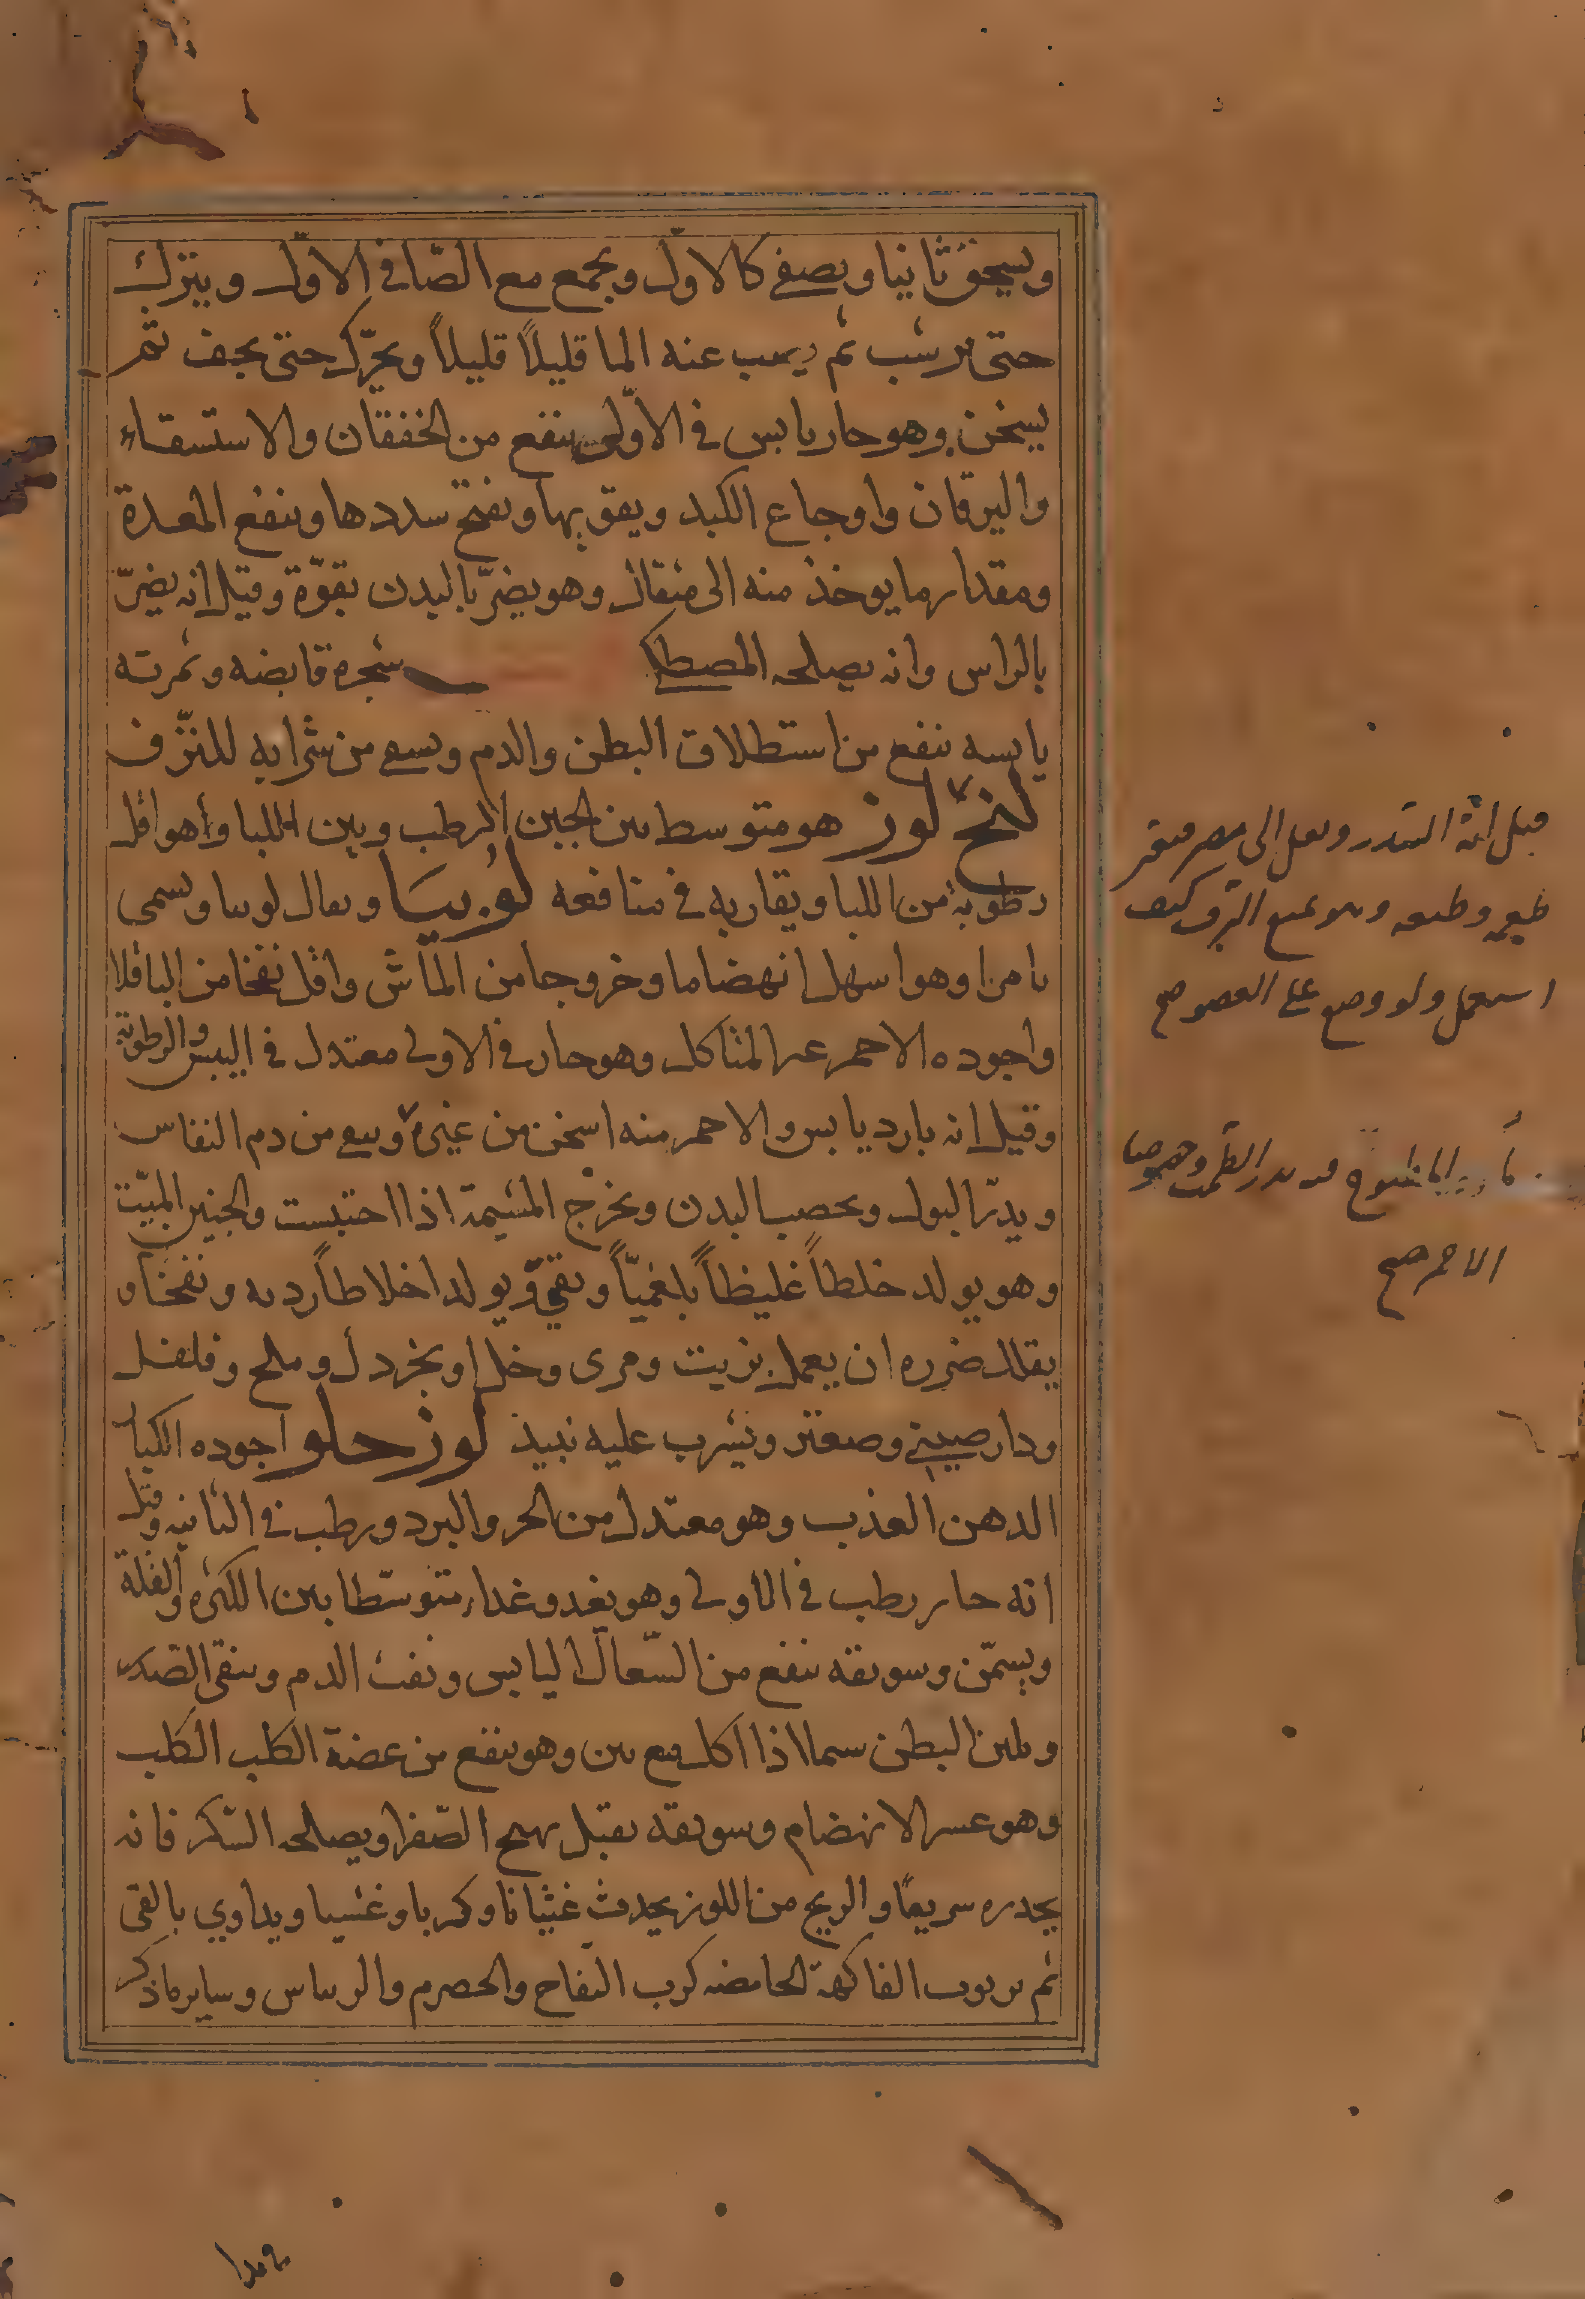 ويسحق ثانيا ويصفى كالاوّل ويجمع مع الصّافى الاوّل ويترك
حتى يرسب ثم يصب عنه الما قليلاً قليلاً ويحرّك حتى يجف ثم
يسخن وهو حار يابس فى الاولى ينفع من الخفقان والاستسقاء
واليرقان واوجاع الكبد ويقويها ويفتح سددها وينفع المعدة
ومقدار ما يوخذ منه الى مثقال وهو يضرّ بالبدن بقوّة وقيل انه يضرّ
بالراس وانه يصلحه المصطكى شجره قابضه وثمرته
يابسه ينفع من استطلاق البطن والدم من شرابه للنزف
لوز هو متوسط بين الجبن الرطب وبين اللبا وهو اقل
رطوبة من اللبا ويقاربه فى منافعه لوبيا ويقال لوبيا ويسمى
ثامرا وهو اسهل انهضاما وخروجا من الماش واقل نفخا من الباقلا
واجوده الاحمر غير المتاكل وهو حار فى الاولى معتدل فى اليبس والرطوبة
وقيل انه بارد يابس والاحمر منه اسخن من غيره من دم النفاس
ويدرّ البول ويخصب البدن ويخرج المشيمة اذا احتبست والجنين الميّت
وهو يولد خلطاً غليظاً بلغميّاً ويولد اخلاطاً رديه ونفخا و
يقلل ضرره ان يعمل بزيت ومرى وخل او بخردل وملح وفلفل
ودارصينى وصعتر ويشرب عليه نبيذ لوز حلو اجوده الكبار
الدهن العذب وهو معتدل من الحر والبرد ورطب فى الثانيه وقيل
انه حار رطب فى الاولى وهو يغدو غداء متوسّطا بين الكثرة والقلة
ويسمّن وسويقه ينفع من السّعال اليابس ونفث الدم وينقى الصّدر
ويلين البطن سيما اذا اكل مع تين وهو ينفع من عضة الكلب الكلب
وهو عسر الانهضام وسويقه ثقيل يهيج الصّفرا ويصلحه السّكر فانه
يحدره سريعاً والريح من اللوز يحدث غثيانا وكربا وغشيا ويداوي بالقى
ثم بربوب الفاكهة الحامضه كرب التفاح والحصرم والريباس وساير ما ذكر
قيل انه السدر ونقل الى مصر فتغير
طعمه وطبعه وهو يمنع النزف كيف
استعمل ولو وضع على العضو صح
يدر الطمث وخصوصا
الاحمر صح